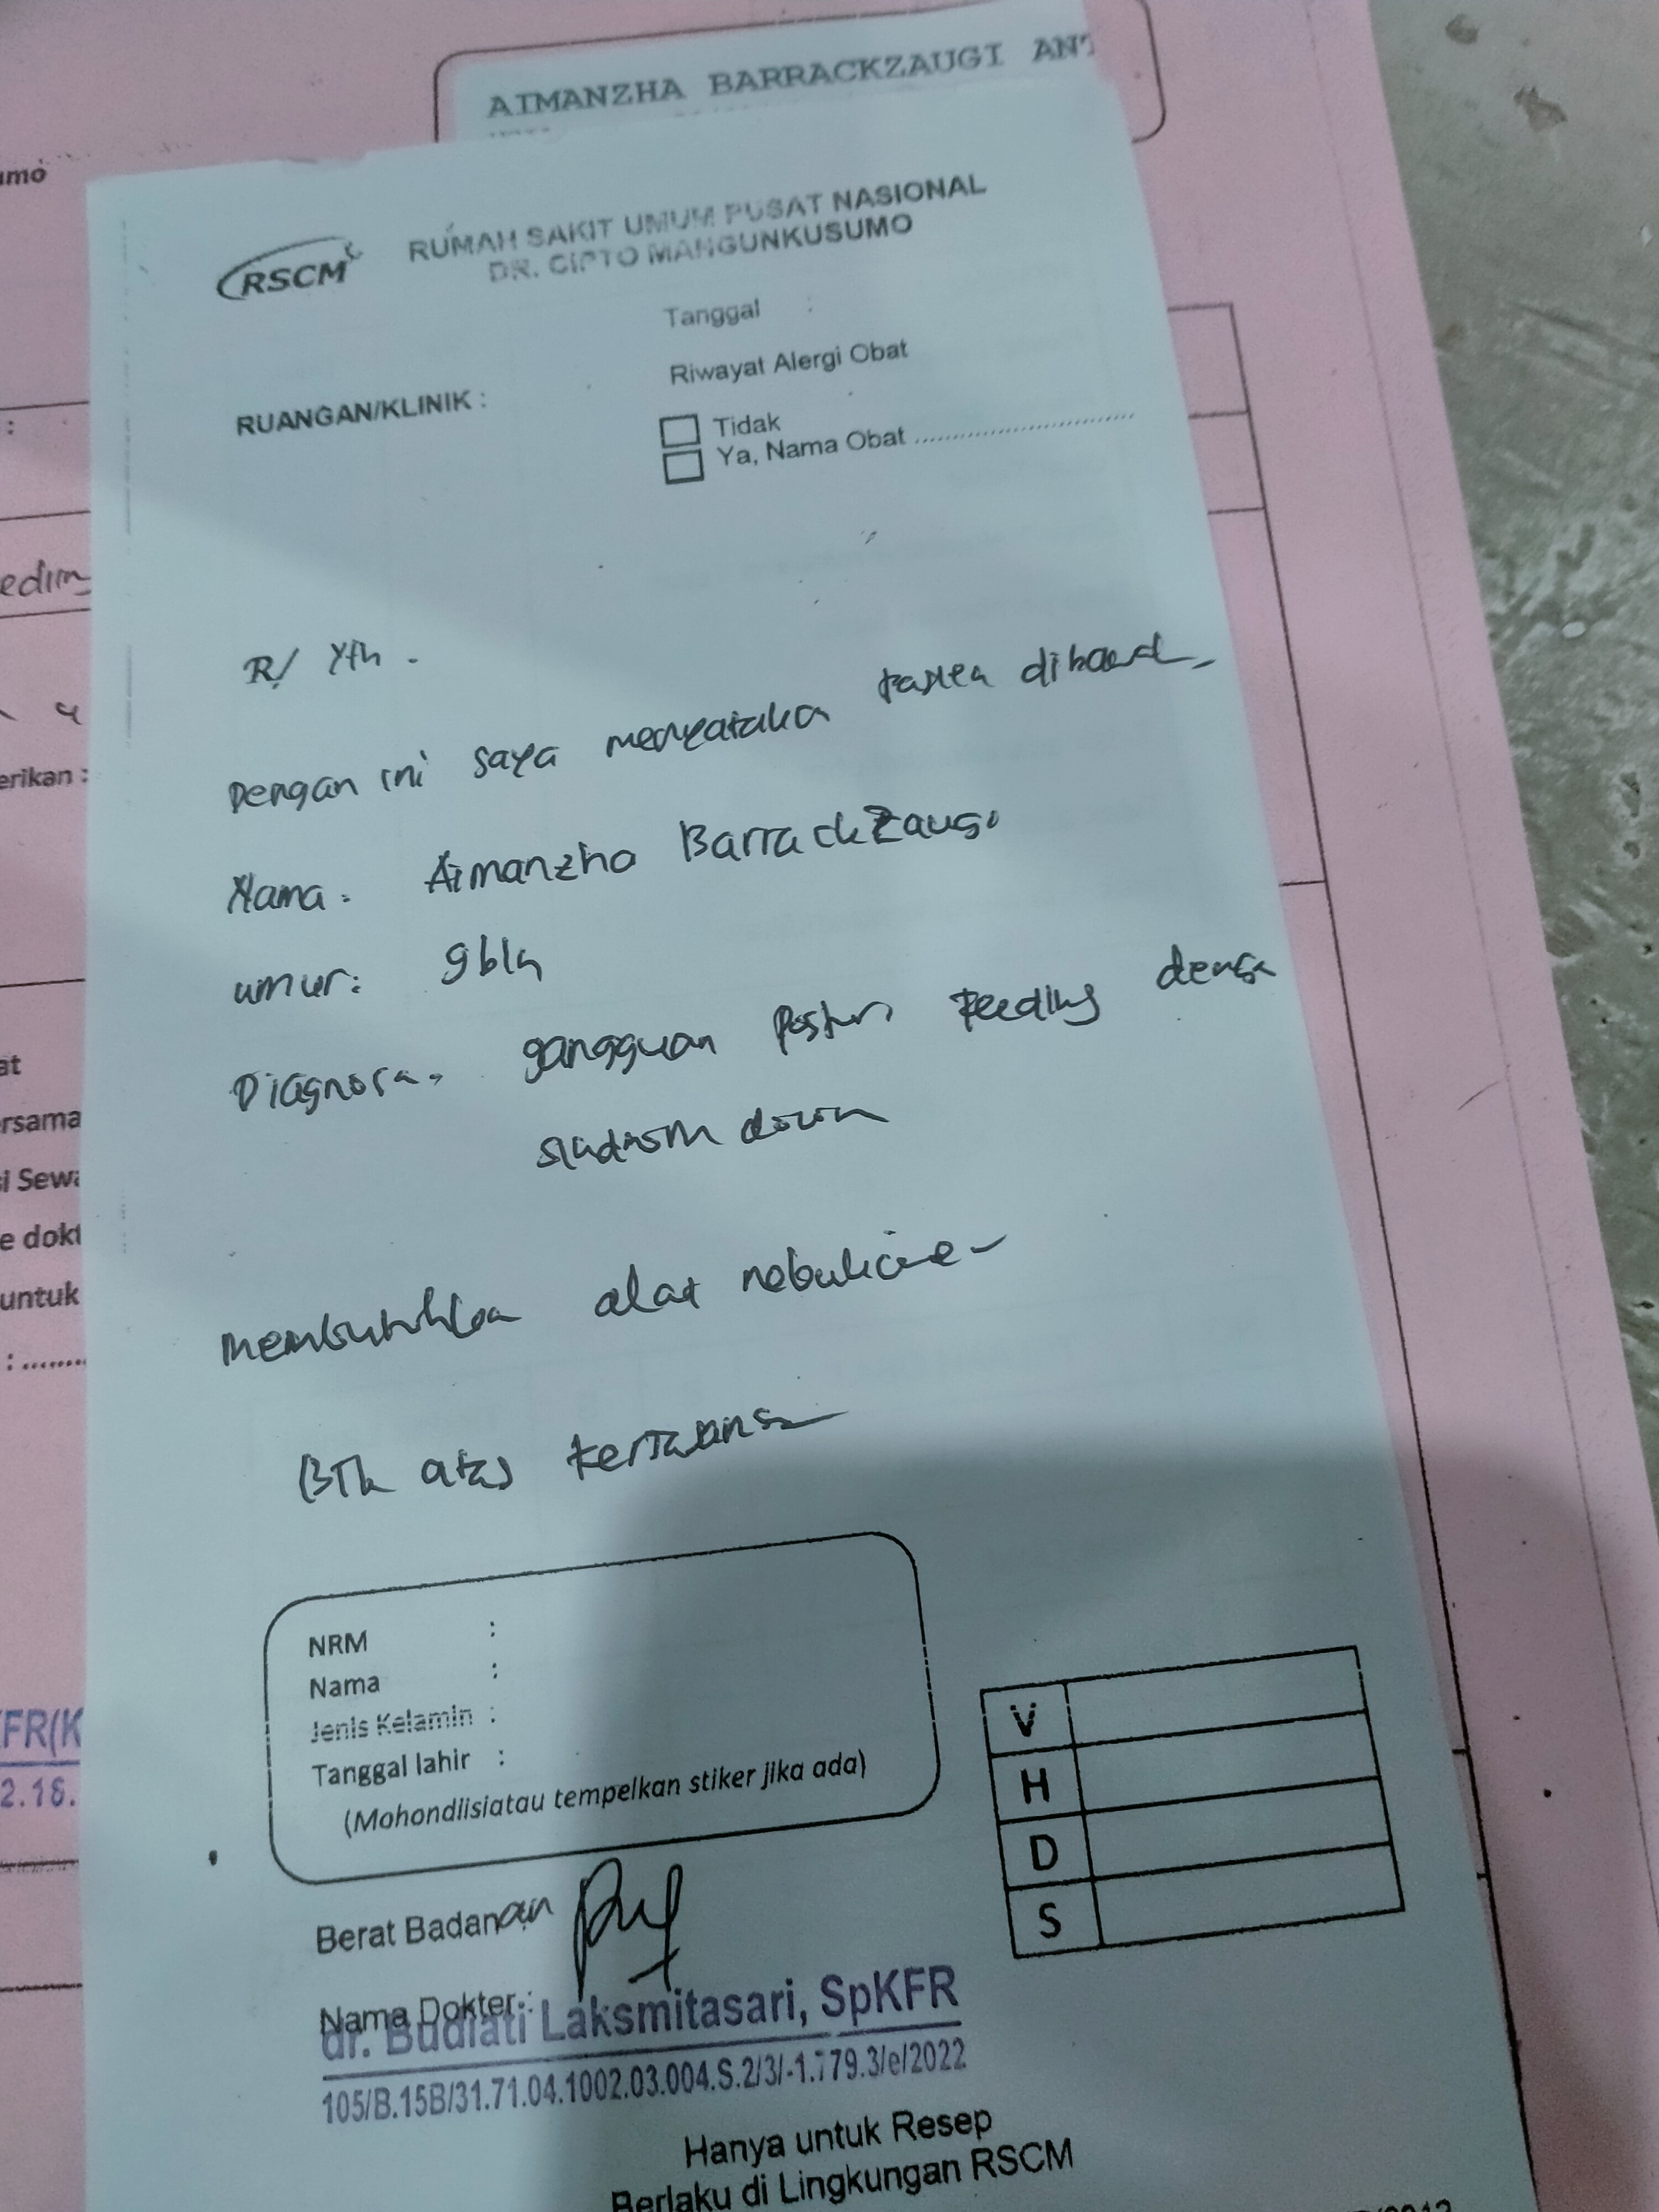 AIMANZHA BARRACKZAUGI ANT
umo
RSCM
RUMAH SAKIT UMUM PUSAT NASIONAL
DR. CIPTO MANGUNKUSUMO
Tanggal :
Riwayat Alergi Obat
RUANGAN/KLINIK :
Tidak
Ya, Nama Obat
edim
R/ Yth .
Dengan ini saya menyataka pasien dibawah
erikan :
Nama : Aimanzha BarrackZaugi
umur : 9 bln
Diagnosa. gangguan postur feeding denga
at
sindrom down
ersama
i Sewa
e dokt
untuk
membutuhka alat nebulizer
: ........
BTk atas kerjasama
NRM :
Nama :
Jenis Kelamin :
Tanggal lahir :
(Mohondiisiatau tempelkan stiker jika ada)
FR(K
2.16.
V
H
D
S
Berat Badan
Nama Dokter :
dr. Budiati Laksmitasari, SpKFR
105/B.15B/31.71.04.1002.03.004.S.2/3/-1.779.3/e/2022
Hanya untuk Resep
Berlaku di Lingkungan RSCM